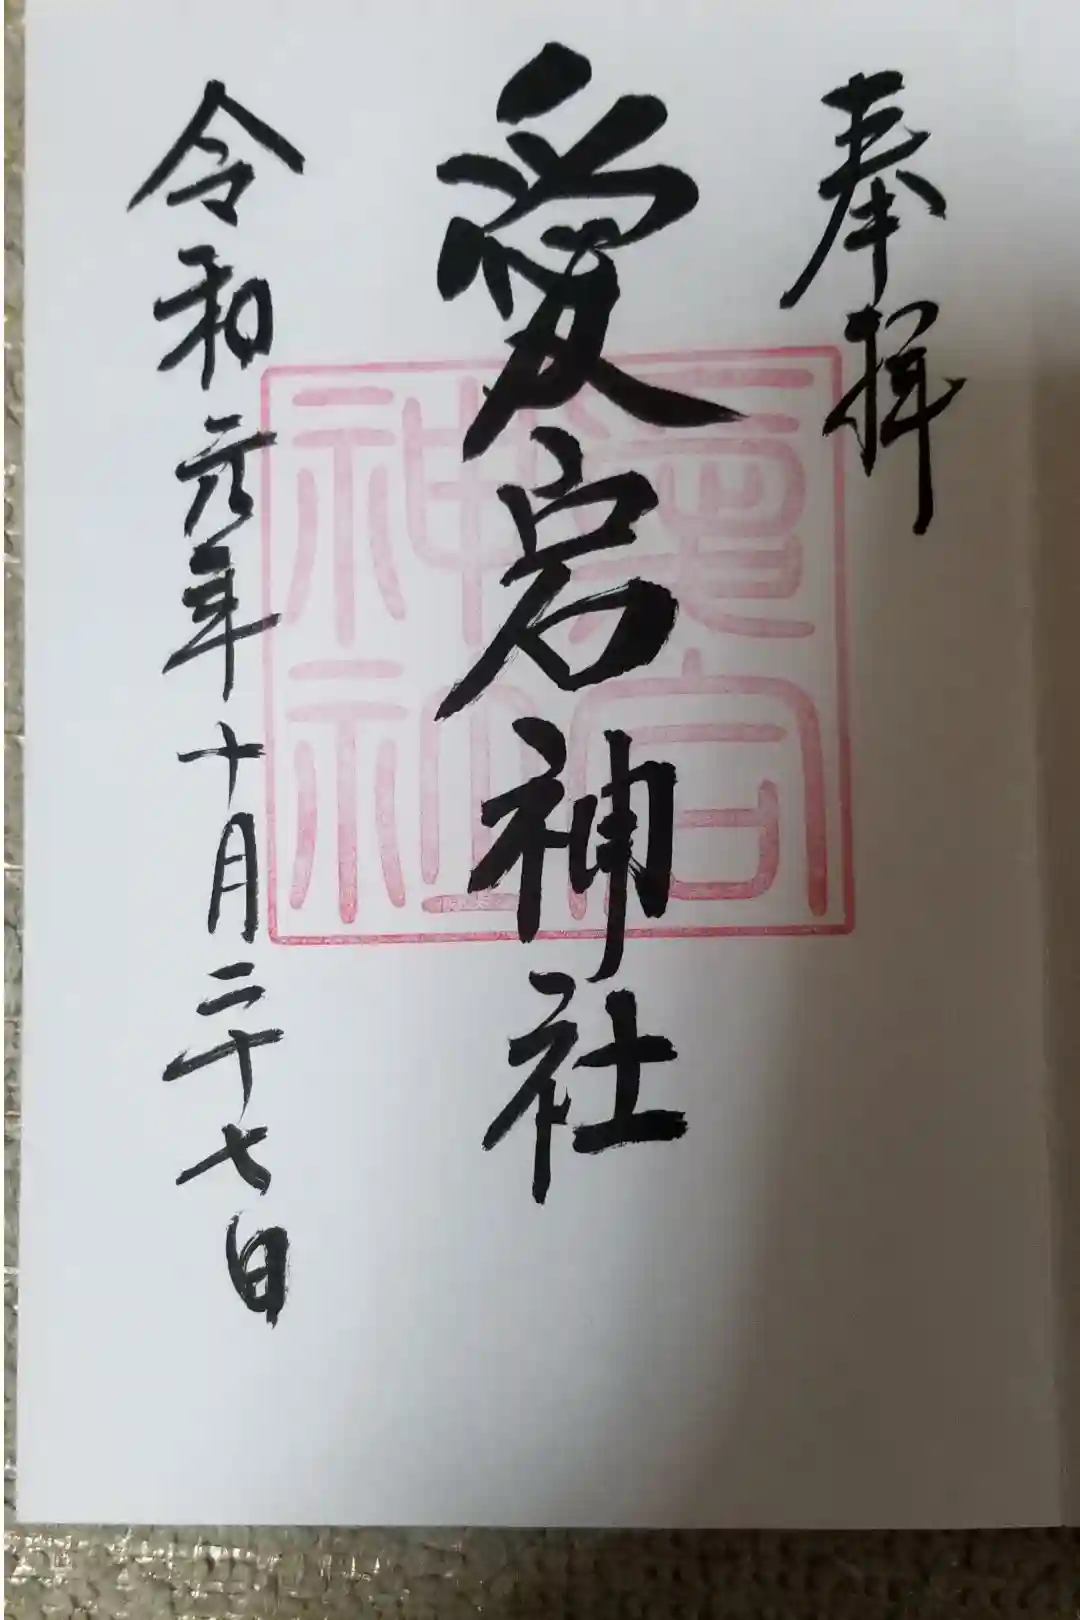 奉拝
愛宕神社
愛宕
神社
令和元年十月二十七日